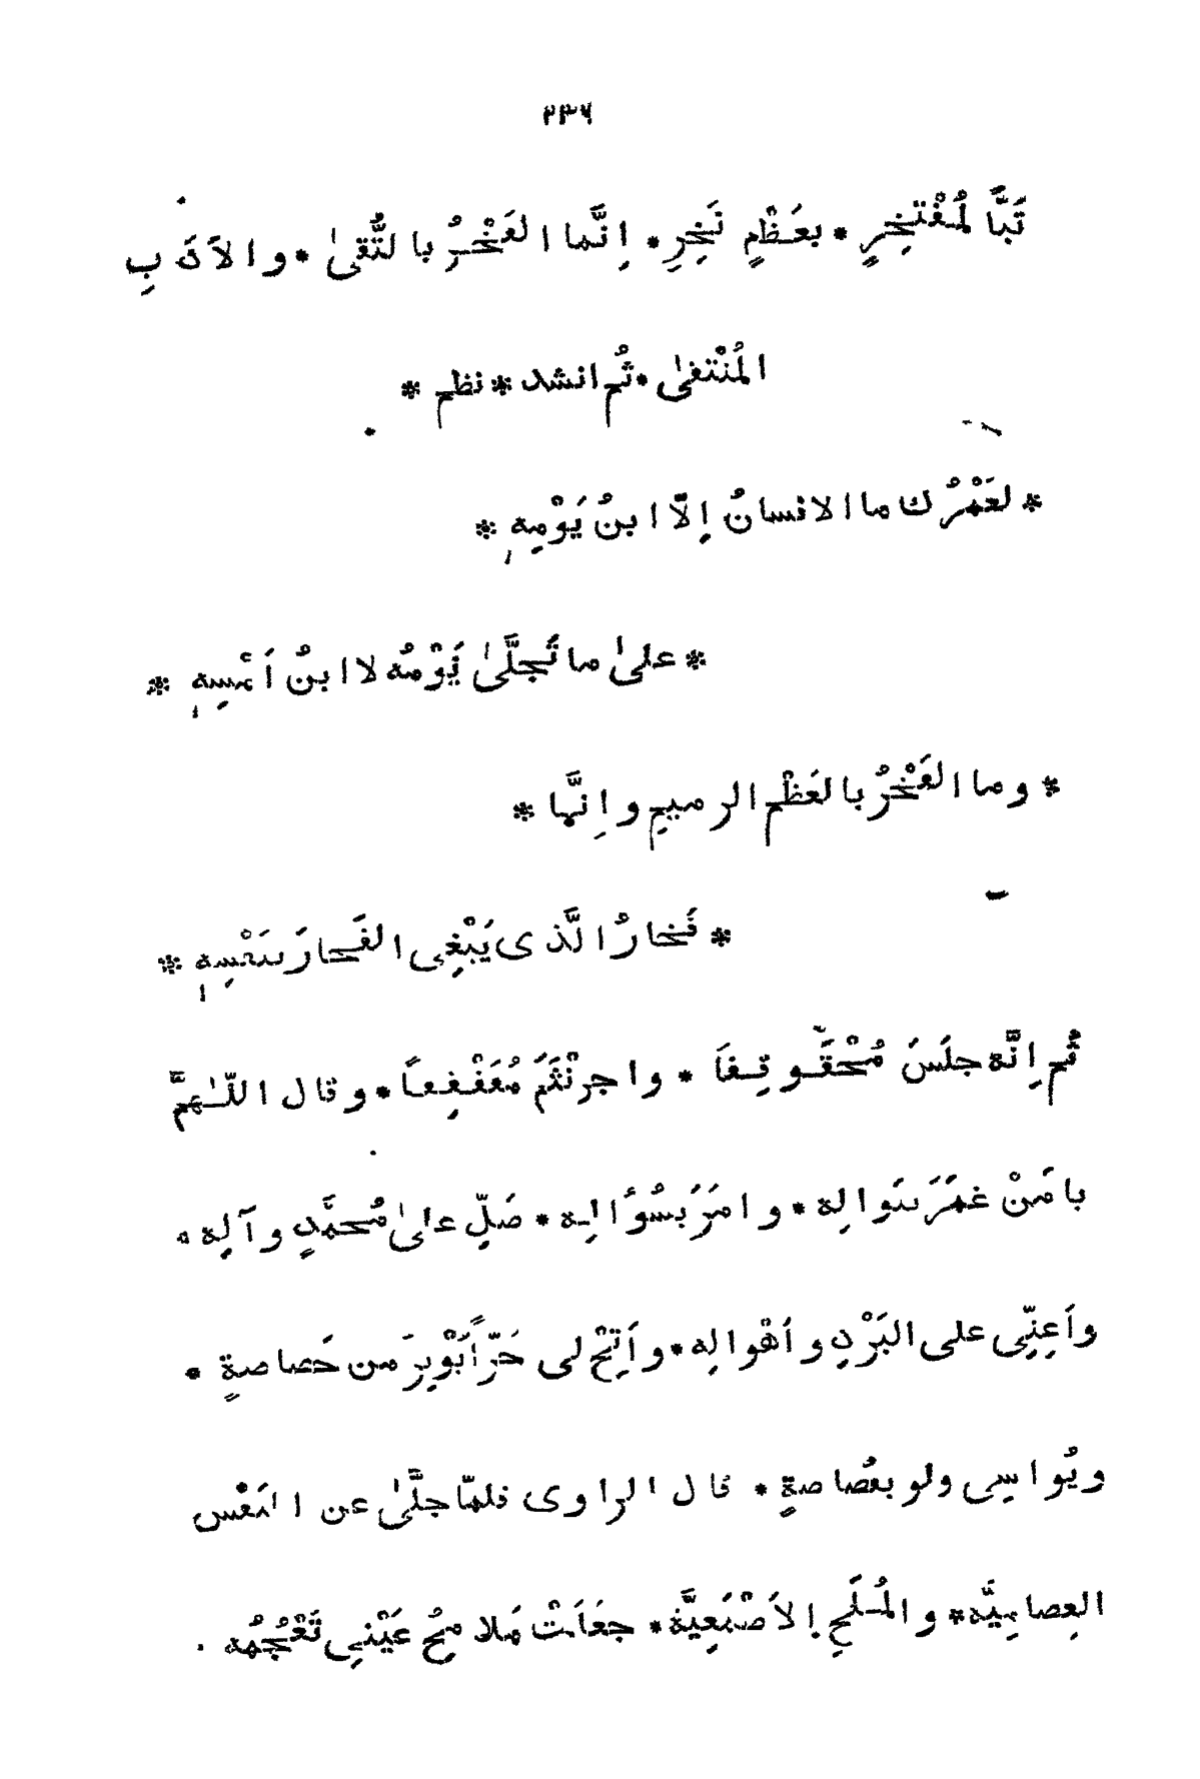 ٢٣٦
تَبًّا لمُفْتَخِرٍ * بعَظْمٍ نَخِرٍ * اِنَّما الفَخْرُ بالتُّقىٰ * والاَدَبِ
المُنْتقىٰ * ثُم انشد * نظم *
* لعَمْرُك ما الانسانُ اِلّا ابنُ يَوْمِهٖ *
* علىٰ ما تَجلَّىٰ يَوْمُه لا ابنُ اَمْسِهٖ *
* وما الفَخْرُ بالعَظْم الرميمِ واِنَّما *
* فَخارُ الَّذى يَبْغِى الفَخارَ بنَفْسِهٖ *
ثُم اِنَّه جلَسَ مُحْقَوقِفًا * واجرنْثَمَ مُقَفْقِفًا * وقال اللّٰهمَّ
يا مَنْ غمَرَ بنَوالِه * وامَرَ بسُؤالِه * صَلِّ علىٰ مُحمَّدٍ وآلِه *
واَعِنِّى على البَرْدِ واَهْوالِه * واَتِحْ لى حُرًّا يُؤْثِرُ من خَصاصةٍ *
ويُواسِى ولو بقُصاصةٍ * قال الراوى فلمّا جلَّىٰ عن النَفْس
العِصامِيَّه * والمُلَحِ الاَصْمَعِيَّة * جعَلَتْ مَلامِحُ عَيْنى تَعْجُمُه *